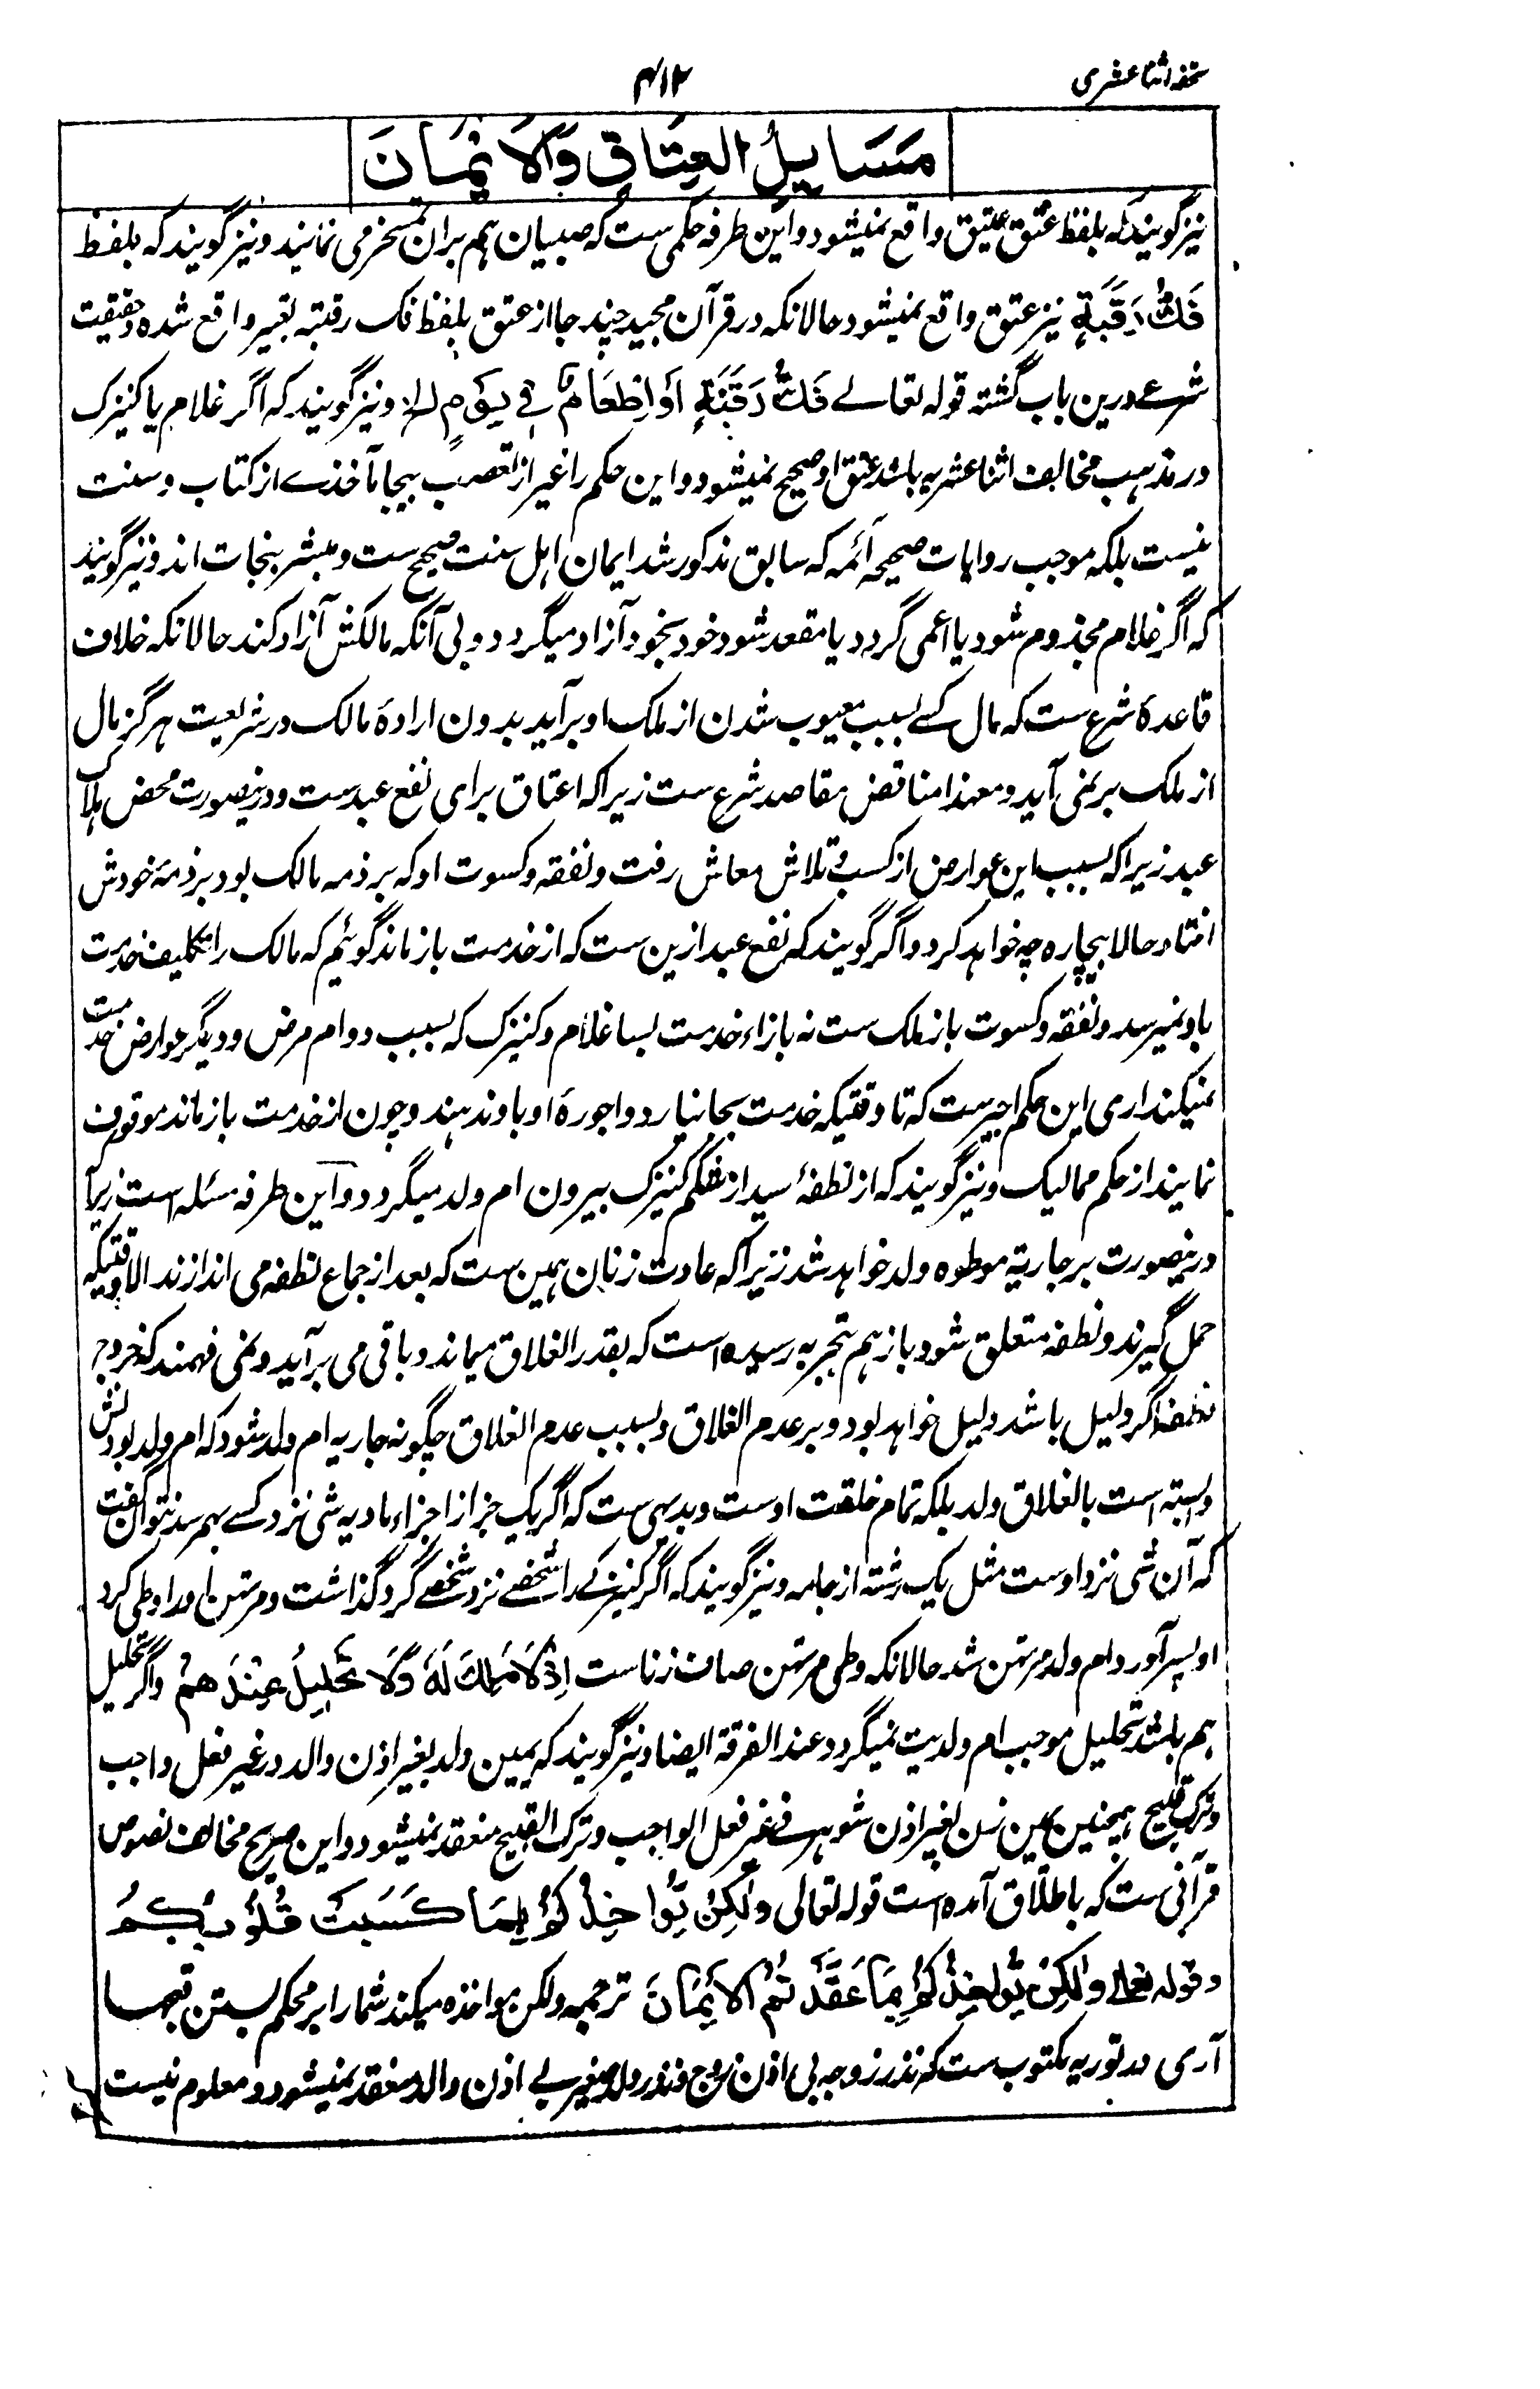 تحفه اثنا عشری
۴۱۲
مَسَایِلُ العِتَاقِ وَالاَیْمَانَ
نیز گویند که بلفظ عتق عتیق واقع نمیشود و این طرفه حکمی ست که صبیان هم بران تمسخر می نمایند و نیز گویند که بلفظ
فَكُّ رَقَبَةٍ نیز عتق واقع نمیشود حالانکه در قرآن مجید چند جا از عتق بلفظ فک رقبته تعبیر واقع شده و حقیقت
شرعے درین باب گشته قوله تعالے فَكُّ رَقَبَةٍ اَوْ اِطْعَامٌ فِی یَوْمٍ الخ و نیز گویند که اگر غلام یا کنیزک
در مذهب مخالف اثنا عشریه باشد عتق او صحیح نمیشود و این حکم را غیر از تعصب بیجا مآخذے از کتاب و سنت
نیست بلکه موجب روایات صحیحه آئمه که سابق مذکور شد ایمان اهل سنت صحیح ست و مبشر بنجات اند و نیز گویند
که اگر غلام مجذوم شود یا اعمی گردد یا مقعد شود خود بخود آزاد میگردد و بی آنکه مالکش آزاد کند حالانکه خلاف
قاعدهٔ شرع ست که مال کسے بسبب معیوب شدن از ملک او برآید بدون ارادهٔ مالک در شریعت هرگز مال
از ملک بر نمی آید و معهذا مناقض مقاصد شرع ست زیرا که اعتاق برای نفع عبد ست و درینصورت محض هلاک
عبد زیرا که بسبب این عوارض از کسب و تلاش معاش رفت و نفقه و کسوت او که بر ذمه مالک بود بر ذمهٔ خودش
افتاد حالا بیچاره چه خواهد کرد و اگر گویند که نفع عبد ازین ست که از خدمت باز ماند گوئیم که مالک را تکلیف خدمت
باو نمیرسد و نفقه و کسوت بازء ملک ست نه بازاء خدمت بسا غلام و کنیزک که بسبب دوام مرض و دیگر عوارض خدمت
نمیکند اری این حکم اجیر ست که تا وقتیکه خدمت بجا نیارد و اجورهٔ او باو ندهند و چون از خدمت باز ماند موقوف
نمایند از حکم ممالیک و نیز گویند که از نطفهٔ سید از شکم کنیزک بیرون ام ولد میگردد و این طرفه مسئله است زیرا
درینصورت هر جاریهٔ موطوه ولد خواهد شد زیرا که عادت زنان همین ست که بعد از جماع نطفه می اندازند الا وقتیکه
حمل گیرند و نطفه متعلق شود باز هم بتجربه رسیده است که بقدر انغلاق میماند و باقی می برآید و نمی فهمند که خروج
نطفه اگر دلیل باشد دلیل خواهد بود و بر عدم انغلاق و بسبب عدم انغلاق چگونه جاریه ام ولد شود که ام ولد بودنش
وابسته است بانغلاق ولد بلکه تمام خلقت اوست و بدیهی ست که اگر یک جز از اجزاء مادیه شی نزد کسے بهم رسد نتوان گفت
که آن شی نزد اوست مثل یک رشته از جامه و نیز گویند که اگر کنیزکے را شخصے نزد شخصے گرو گذاشت و مرتهن اورا وطی کرد
او پسر آورد ام ولد مرتهن شد حالانکه وطی مرتهن صاف زناست اِذْ لَا مِلْكَ لَهٗ وَلَا تَحْلِیلَ عِنْدَهُمْ و اگر تحلیل
هم باشد تحلیل موجب ام ولدیت نمیگردد عند الفرقة ایضا و نیز گویند که یمین ولد بغیر اذن والد در غیر فعل واجب
و ترک قبیح همچنین یمین زن بغیر اذن شوهر فے غیر فعل الواجب و ترک القبیح منعقد نمیشود و این صریح مخالف نصوص
قرآنی ست که باطلاق آمده است قوله تعالی وَلٰکِنْ یُّؤَاخِذُکُمْ بِمَا کَسَبَتْ قُلُوْبُکُمْ
و قوله تعالی وَلٰکِنْ یُّؤَاخِذُکُمْ بِمَا عَقَّدْتُمُ الْاَیْمَانَ ترجمه ولکن مواخذه میکند شما را بر محکم بستن قسمها
آری در توریه مکتوب ست که نذر زوجه بی اذن زوج و نذر ولد صغیر بے اذن والد منعقد نمیشود و معلوم نیست